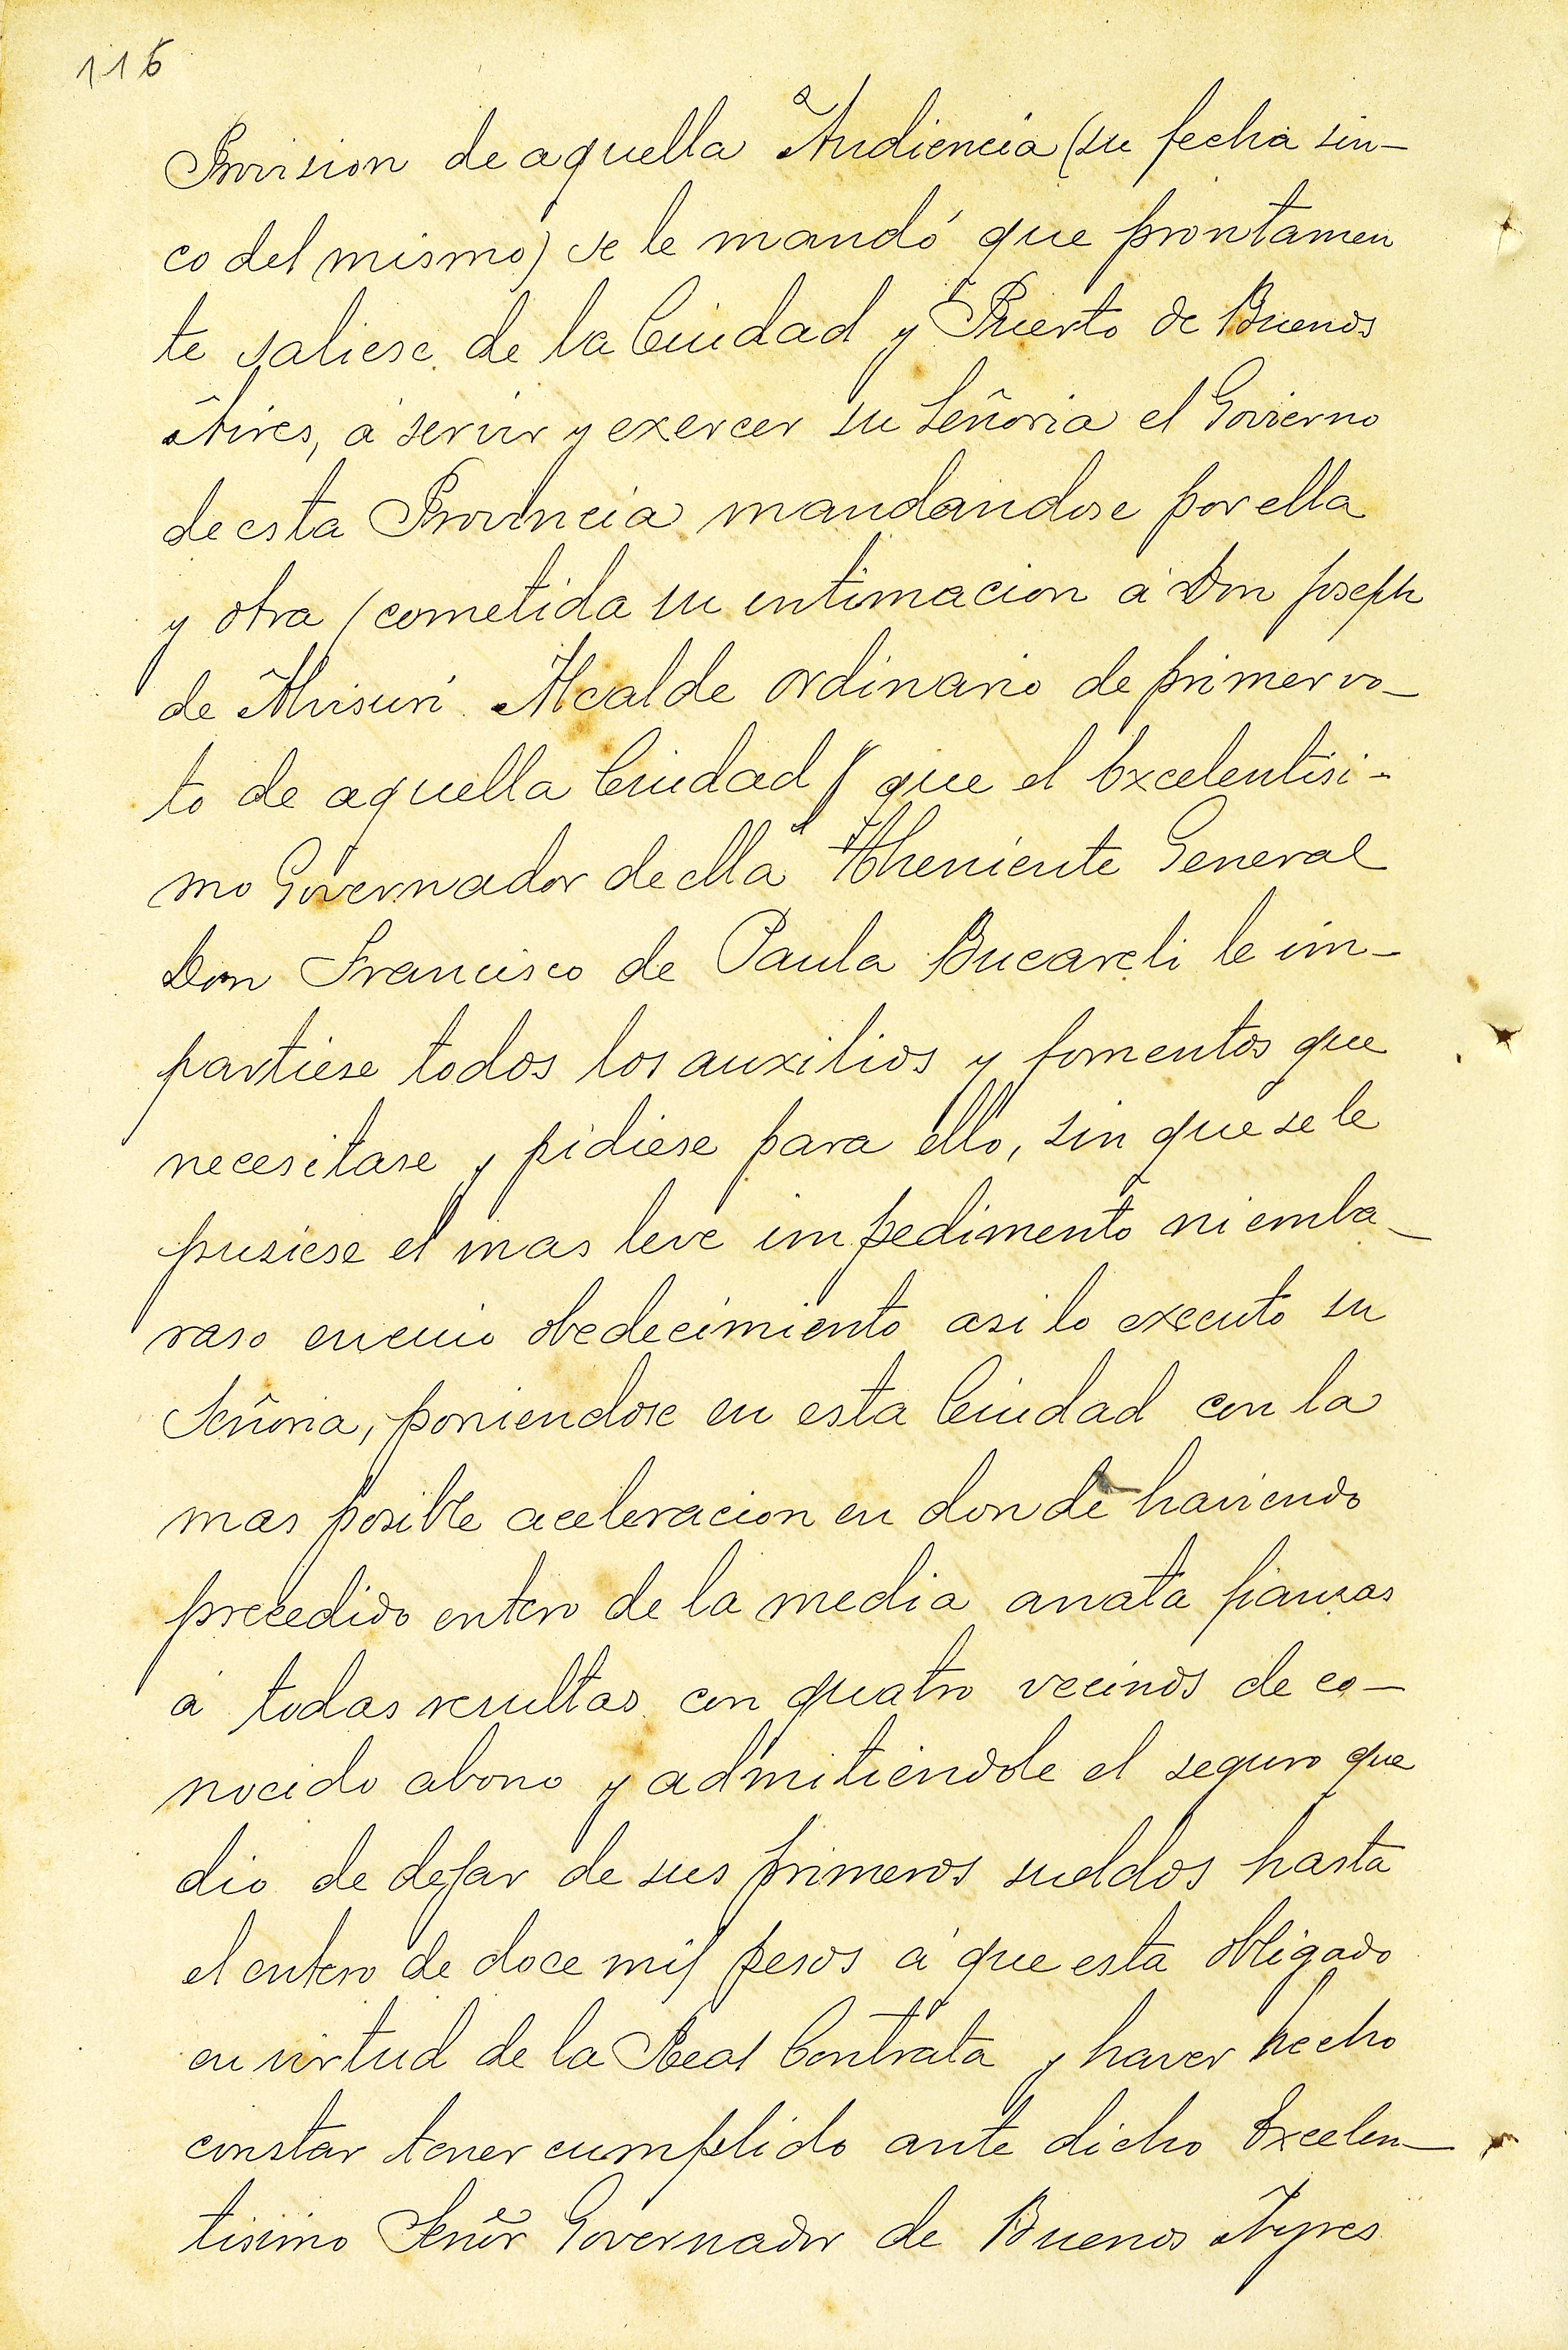 116
Provision de aquella Audiencia (su fecha sin-
co del mismo) se le mandó que prontamen
te saliese de la Ciudad y Puerto de Buenos
Aires, á servir y exercer su Señoria el Govierno
de esta Provincia mandandose por ella
y otra (cometida su intimacion á Don Joseph
de Alvisuri Alcalde ordinario de primer vo-
to de aquella Ciudad) que el Excelentisi-
mo Governador de ella Theniente General
Don Francisco de Paula Bucareli le im-
partiese todos los auxilios y fomentos que
necesitase y pidiese para ello, sin que se le
pusiese el mas leve impedimento ni emba-
raso en cuio obedecimiento asi lo executo su
Señoria, poniendose en esta Ciudad con la
mas posible aceleracion en donde haviendo
precedido entero de la media anata fianzas
á todas resultas con quatro vecinos de co-
nocido abono y admitiendole el seguro que
dio de dejar de sus primeros sueldos hasta
el entero de doce mil pesos á que esta obligado
en virtud de la Real Contrata y haver hecho
constar tener cumplido ante dicho Excelen-
tisimo Señor Governador de Buenos Ayres